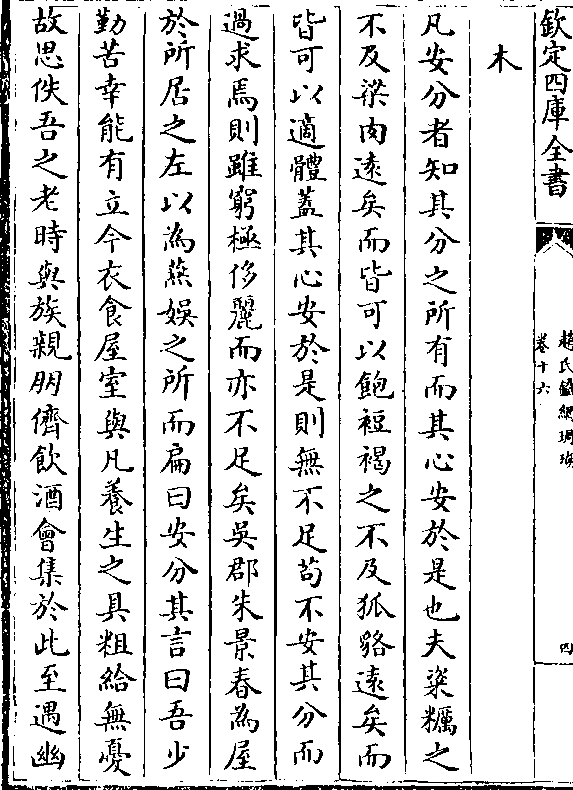 欽定四庫全書
趙氏鐵網珊瑚
卷十六
四
木
凡安分者知其分之所有而其心安於是也夫粢糲之
不及梁肉遠矣而皆可以飽裋褐之不及狐貉遠矣而
皆可以適體蓋其心安於是則無不足苟不安其分而
過求焉則雖窮極侈麗而亦不足矣吳郡朱景春為屋
於所居之左以為燕娛之所而扁曰安分其言曰吾少
勤苦幸能有立今衣食屋室與凡養生之具粗給無憂
故思佚吾之老時與族親朋儕飲酒會集於此至遇幽